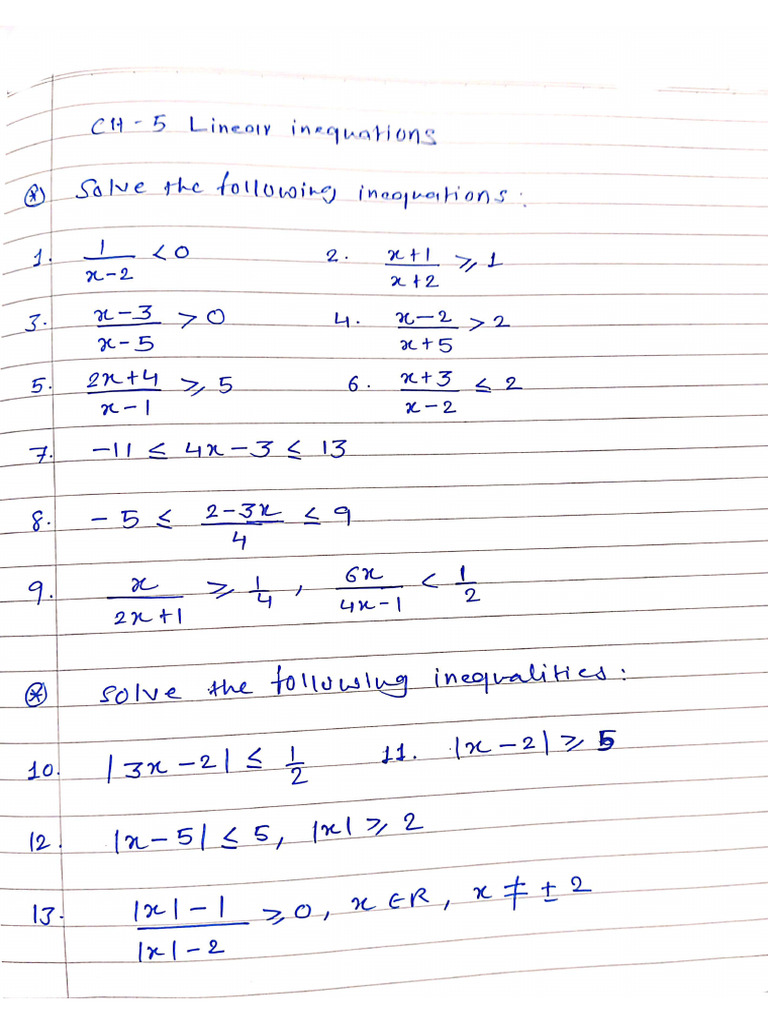 CH-5 Linear inequations
⊛ Solve the following inequations:
1. 1/(x-2) < 0 2. (x+1)/(x+2) ⩾ 1
3. (x-3)/(x-5) > 0 4. (x-2)/(x+5) > 2
5. (2x+4)/(x-1) ⩾ 5 6. (x+3)/(x-2) ≤ 2
7. -11 ≤ 4x-3 ≤ 13
8. -5 ≤ (2-3x)/4 ≤ 9
9. x/(2x+1) ⩾ 1/4, 6x/(4x-1) < 1/2
⊛ Solve the following inequalities:
10. |3x-2| ≤ 1/2 11. |x-2| ⩾ 5
12. |x-5| ≤ 5, |x| ⩾ 2
13. (|x|-1)/(|x|-2) ⩾ 0, x ∈ R, x ≠ ± 2